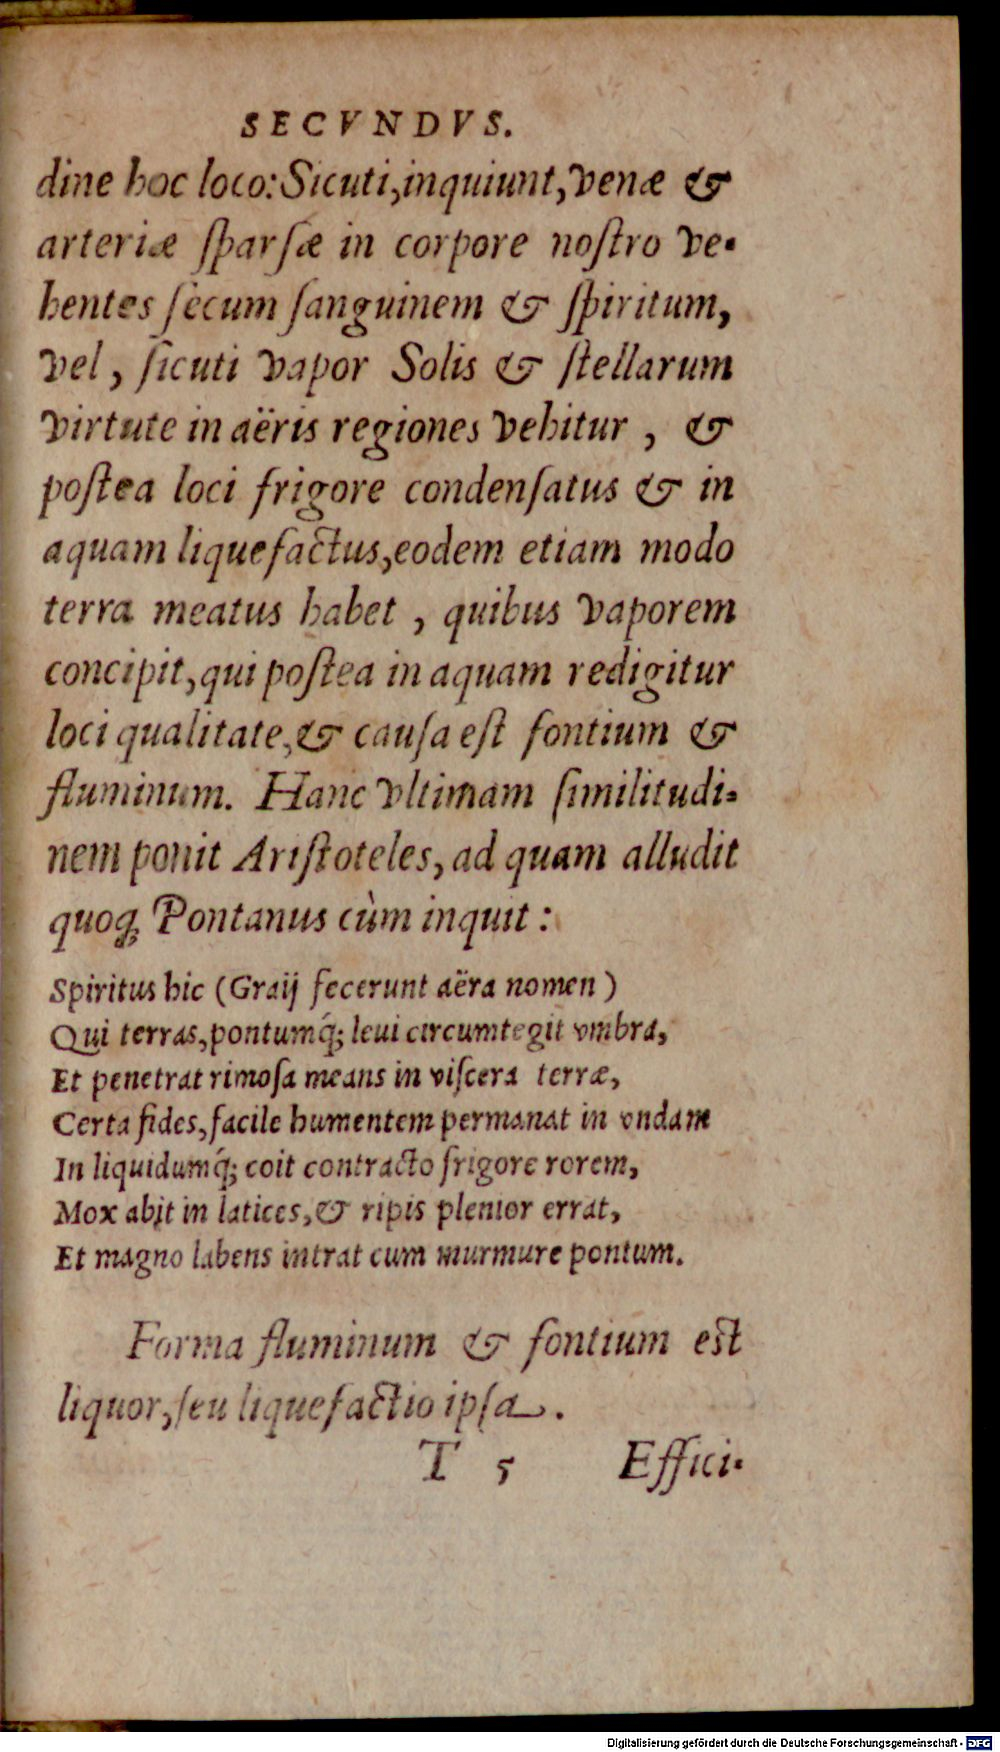 SECVNDVS.
dine hoc loco: Sicuti, inquiunt, venæ &
arteriæ ſparſæ in corpore noſtro ve-
hentes ſecum ſanguinem & ſpiritum,
vel, ſicuti vapor Solis & ſtellarum
virtute in aëris regiones vehitur, &
poſtea loci frigore condenſatus & in
aquam liquefactus, eodem etiam modo
terra meatus habet, quibus vaporem
concipit, qui poſtea in aquam redigitur
loci qualitate, & cauſa eſt fontium &
fluminum. Hanc vltimam ſimilitudi-
nem ponit Ariſtoteles, ad quam alludit
quoq; Pontanus cùm inquit:
Spiritus hic (Graij fecerunt aëra nomen)
Qui terras, pontumq́; leui circumtegit vmbra,
Et penetrat rimoſa means in viſcera terræ,
Certa fides, facile humentem permanat in vndam
In liquidumq́; coit contracto frigore rorem,
Mox abit in latices, & ripis plenior errat,
Et magno labens intrat cum murmure pontum.
Forma fluminum & fontium est
liquor, ſeu liquefactio ipſa.
T 5 Effici-
Digitalisierung gefördert durch die Deutsche Forschungsgemeinschaft - DFG